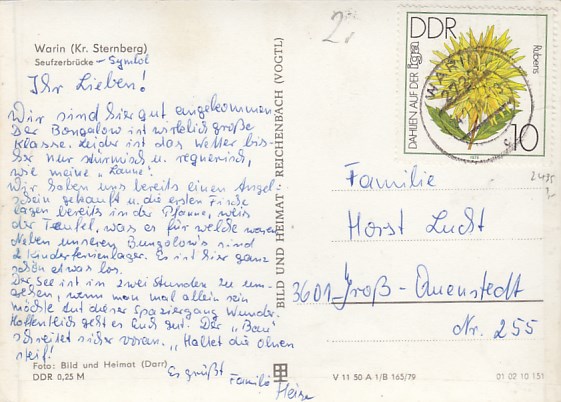 Warin (Kr. Sternberg)
Seufzerbrücke – Symbol
Ihr Lieben!
Wir sind hier gut angekommen.
Der Bongalow ist wirklich große
Klasse. Leider ist das Wetter bis-
her nur stürmisch u. regnerisch,
wie meine „Laune".
Wir haben uns bereits einen Angel-
schein gekauft u. die ersten Fische
lagen bereits in der Pfanne, weis
der Teufel, was es für welche waren.
Neben unserem Bungolow's sind
2 Kinderferienlager. Es ist hier ganz
schön etwas los.
Der See ist in zwei Stunden zu um-
gehen, wenn man mal allein sein
möchte tut dieser Spaziergang Wunder.
Hoffentlich geht es Euch gut. Der „Bau"
schreitet sicher voran. „Haltet die Ohren
steif!
Es grüßt Familie
Foto: Bild und Heimat (Darr)
DDR 0,25 M
BILD UND HEIMAT REICHENBACH (VOGTL)
DDR
DAHLIEN AUF DER iga
Rubens
10
1979
WARIN
Familie
Horst Lucht
3601 Groß-Quenstedt
Nr. 255
V 11 50 A 1/B 165/79
01 02 10 151